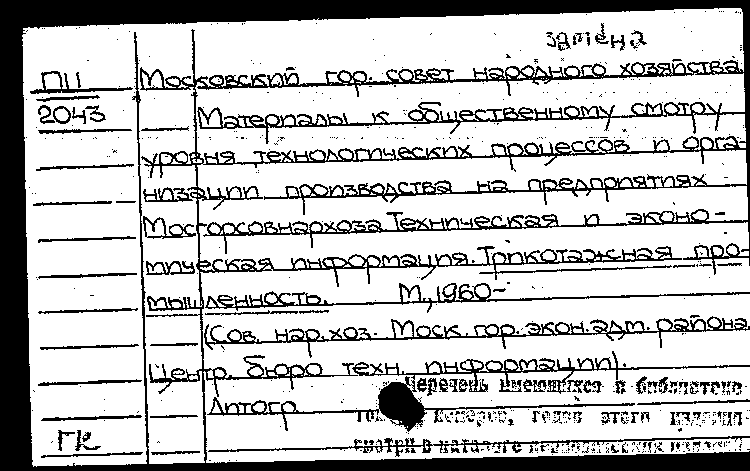 замена
П11 Московский гор. совет народного хозяйства.
2043 Материалы к общественному смотру
уровня технологических процессов и орга-
низации производства на предприятиях
Мосгорсовнархоза. Техническая и эконо-
мическая информация. Трикотажная про-
мышленность. М., 1960-
(Сов. нар. хоз. Моск. гор. экон. адм. района.
Центр. бюро техн. информации).
Перечень имеющихся в библиотеке
Литогр. номеров, годов этого издания
ГК смотри в каталоге периодических изданий